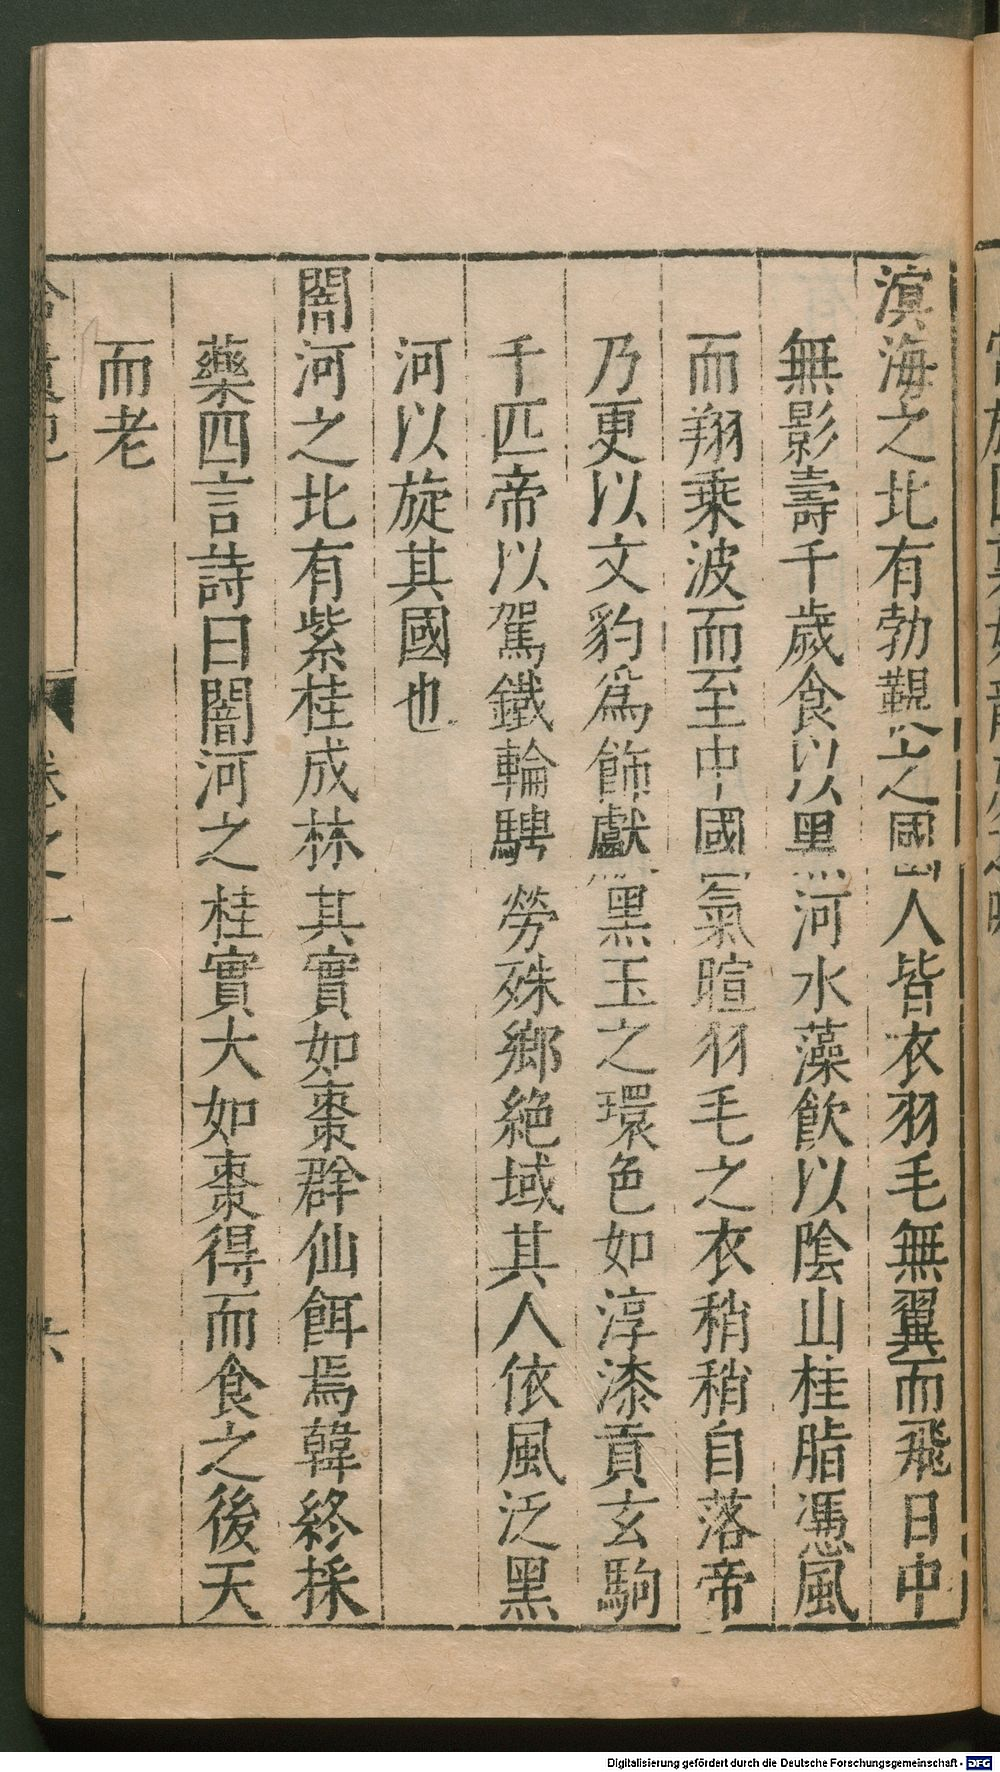 溟海之北有勃鞮之國人皆衣羽毛無翼而飛日中
無影壽千歲食以黑河水藻飲以陰山桂脂憑風
而翔乘波而至中國氣暄羽毛之衣稍稍自落帝
乃更以文豹爲飾獻黑玉之環色如淳漆貢玄駒
千匹帝以駕鐵輪騁勞殊鄉絕域其人依風泛黑
河以旋其國也
闇河之北有紫桂成林其實如棗群仙餌焉韓終採
藥四言詩曰闇河之桂實大如棗得而食之後天
而老
Digitalisierung gefördert durch die Deutsche Forschungsgemeinschaft - DFG